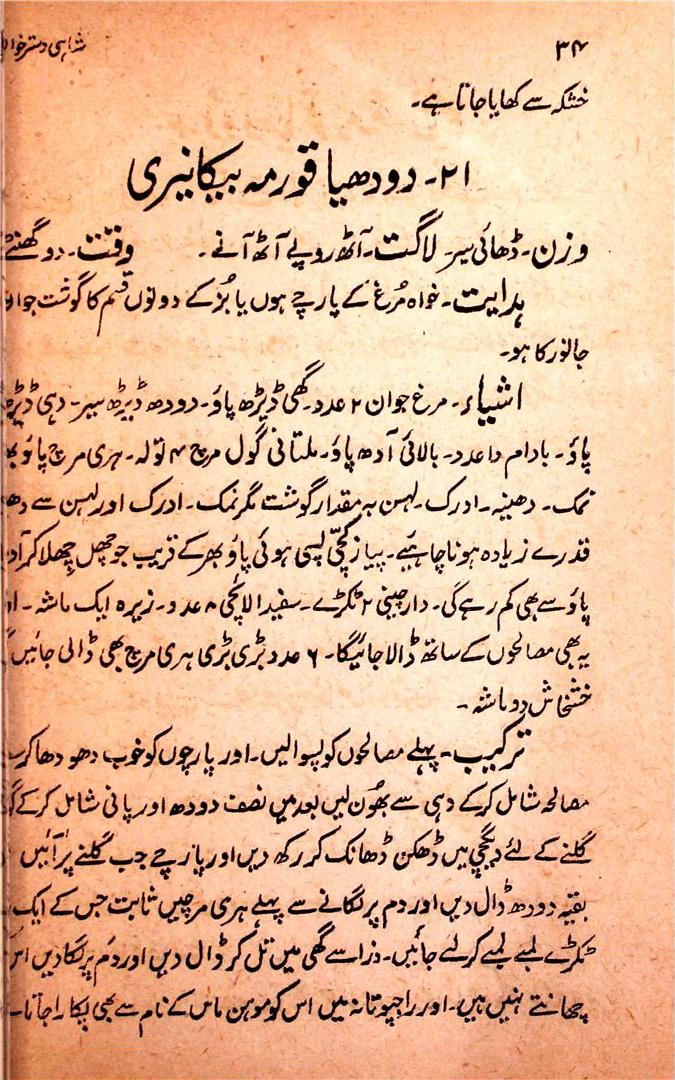 ۳۴ شاہی دستر
خشکہ سے کھایا جاتا ہے۔
۲۱۔ دودھیا قورمہ بیکانیری
وزن۔ ڈھائی سیر لاگت۔ آٹھ روپے آٹھ آنے۔ وقت۔ دو گھنٹے
ہدایت۔ خواہ مُرغ کے پارچے ہوں یا بُز کے دونوں قسم کا گوشت جوان
جانور کا ہو۔
اشیاء۔ مرغ جوان ۲ عدد۔ گھی ڈیڑھ پاؤ۔ دودھ ڈیڑھ سیر۔ دہی ڈیڑھ
پاؤ۔ بادام ۱۵ عدد۔ بالائی آدھ پاؤ۔ ملتانی گول مرچ ۴ تولہ۔ ہری مرچ پاؤ
نمک۔ دھنیہ۔ ادرک۔ لہسن بہ مقدار گوشت مگر نمک۔ ادرک اور لہسن سے
قدرے زیادہ ہونا چاہیئے۔ پیاز کچّی پسی ہوئی پاؤ بھر کے قریب جو چھل چھلا کر
پاؤ سے بھی کم رہے گی۔ دارچینی ۲ ٹکڑے۔ سفید الائچی ۸ عدد۔ زیرہ ایک ماشہ۔
یہ بھی مصالحوں کے ساتھ ڈالا جائیگا۔ ۶ عدد بڑی بڑی ہری مرچ بھی ڈالی جائیں
خشخاش دو ماشہ۔
ترکیب۔ پہلے مصالحوں کو پسوا لیں۔ اور پارچوں کو خوب دھو دھا کر
مصالحہ شامل کرکے دہی سے بھُون لیں بعد میں نصف دودھ اور پانی شامل کرکے
گلنے کے لئے دیگچی میں ڈھکن ڈھانک کر رکھ دیں اور پارچے جب گلنے پر آئیں
بقیہ دودھ ڈال دیں اور دم پر لگانے سے پہلے ہری مرچیں ثابت جس کے ایک
ٹکڑے لمبے لمبے کر لئے جائیں۔ ذرا سے گھی میں تل کر ڈال دیں اور دم پر لگا دیں
چھانتے نہیں ہیں۔ اور راجپوتانہ میں اس کو موہن ماس کے نام سے بھی پکارا جاتا۔